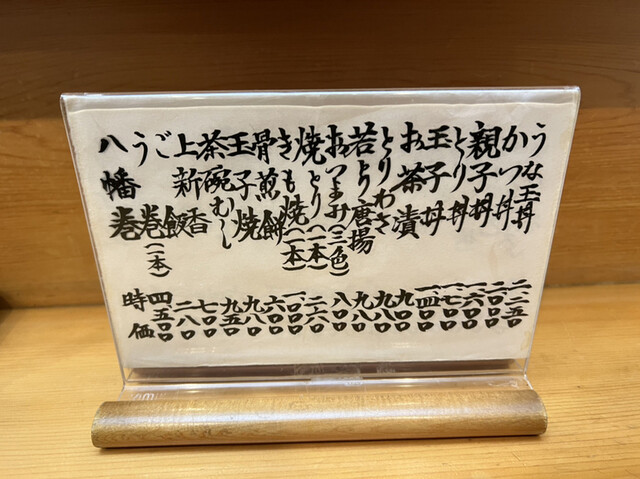 うな玉丼 二、二五〇
かつ丼 二、〇〇〇
親子丼 一、六〇〇
とり丼 一、七〇〇
玉子丼 一、四〇〇
お茶漬 九〇〇
とりわさ 九八〇
若とり唐揚 九八〇
おつまみ(三色) 八〇〇
焼とり(一本)
きも焼(一本)
骨煎餅 六〇〇
玉子焼 九八〇
茶碗むし 九五〇
上新香 七〇〇
ご飯 二八〇
う巻(一本) 四五〇〇
八幡巻 時価